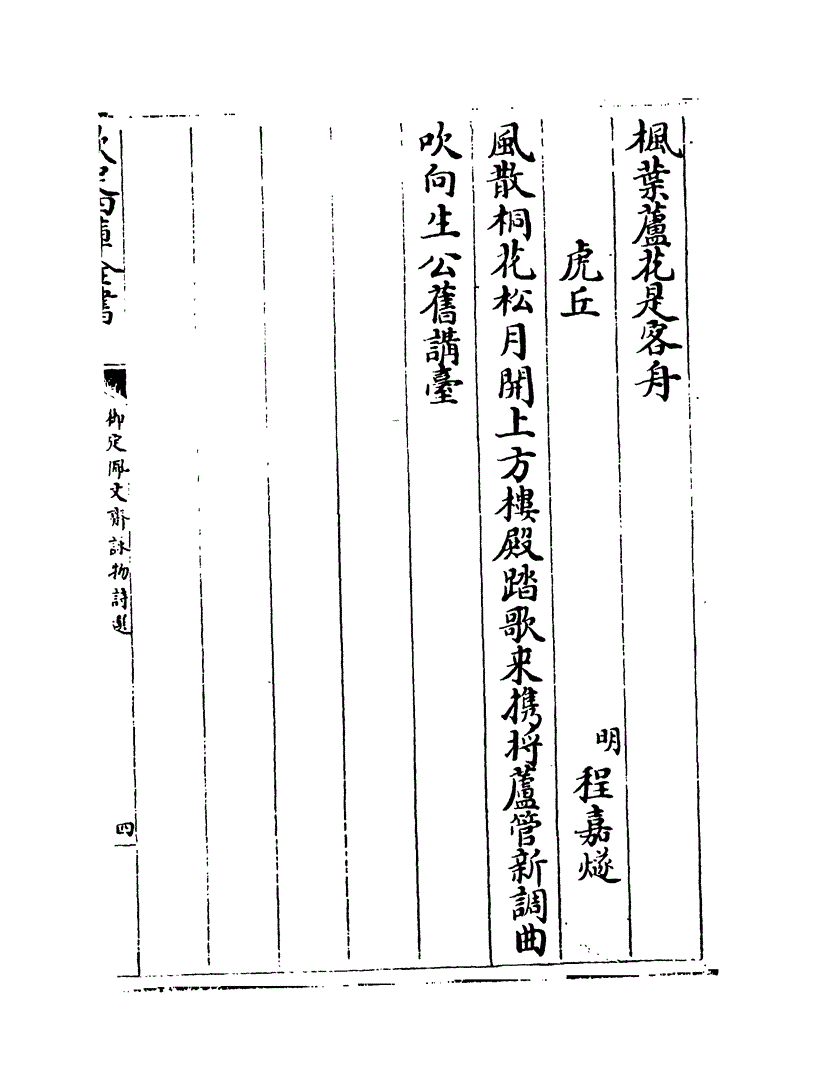 楓葉蘆花是客舟
虎丘
明 程嘉燧
風散桐花松月開上方樓殿踏歌来携將蘆管新調曲
吹向生公舊講臺
欽定四庫全書
御定佩文齋詠物詩選
四